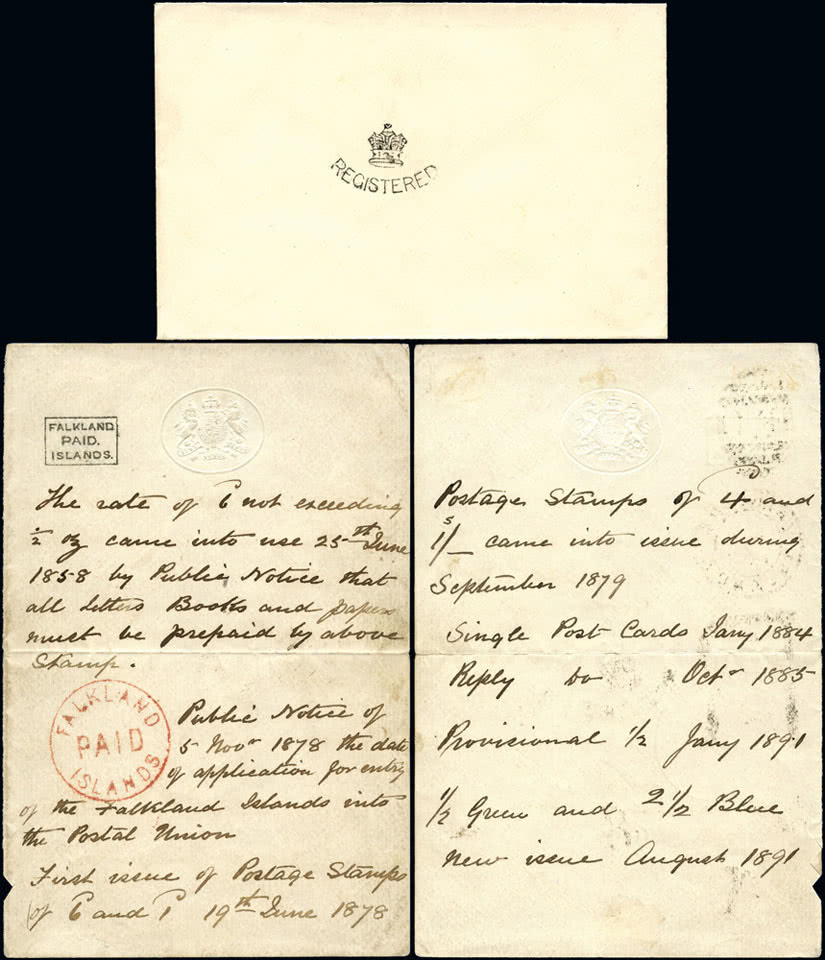 REGISTERED
FALKLAND
PAID.
ISLANDS.
The rate of 6 not exceeding
½ oz came into use 25th June
1858 by Public Notice that
all Letters Books and papers
must be prepaid by above
Stamp.
FALKLAND
PAID
ISLANDS
Public Notice of
5 Novr 1878 the date
of application for entry
of the Falkland Islands into
the Postal Union
First issue of Postage Stamps
of 6 and 1 19th June 1878
Postage Stamps of 4 and
1s/_ came into issue during
September 1879
Single Post Cards Jany 1884
Reply Do Octr 1885
Provisional ½ Jany 1891
½ Green and 2½ Blue
new issue August 1891